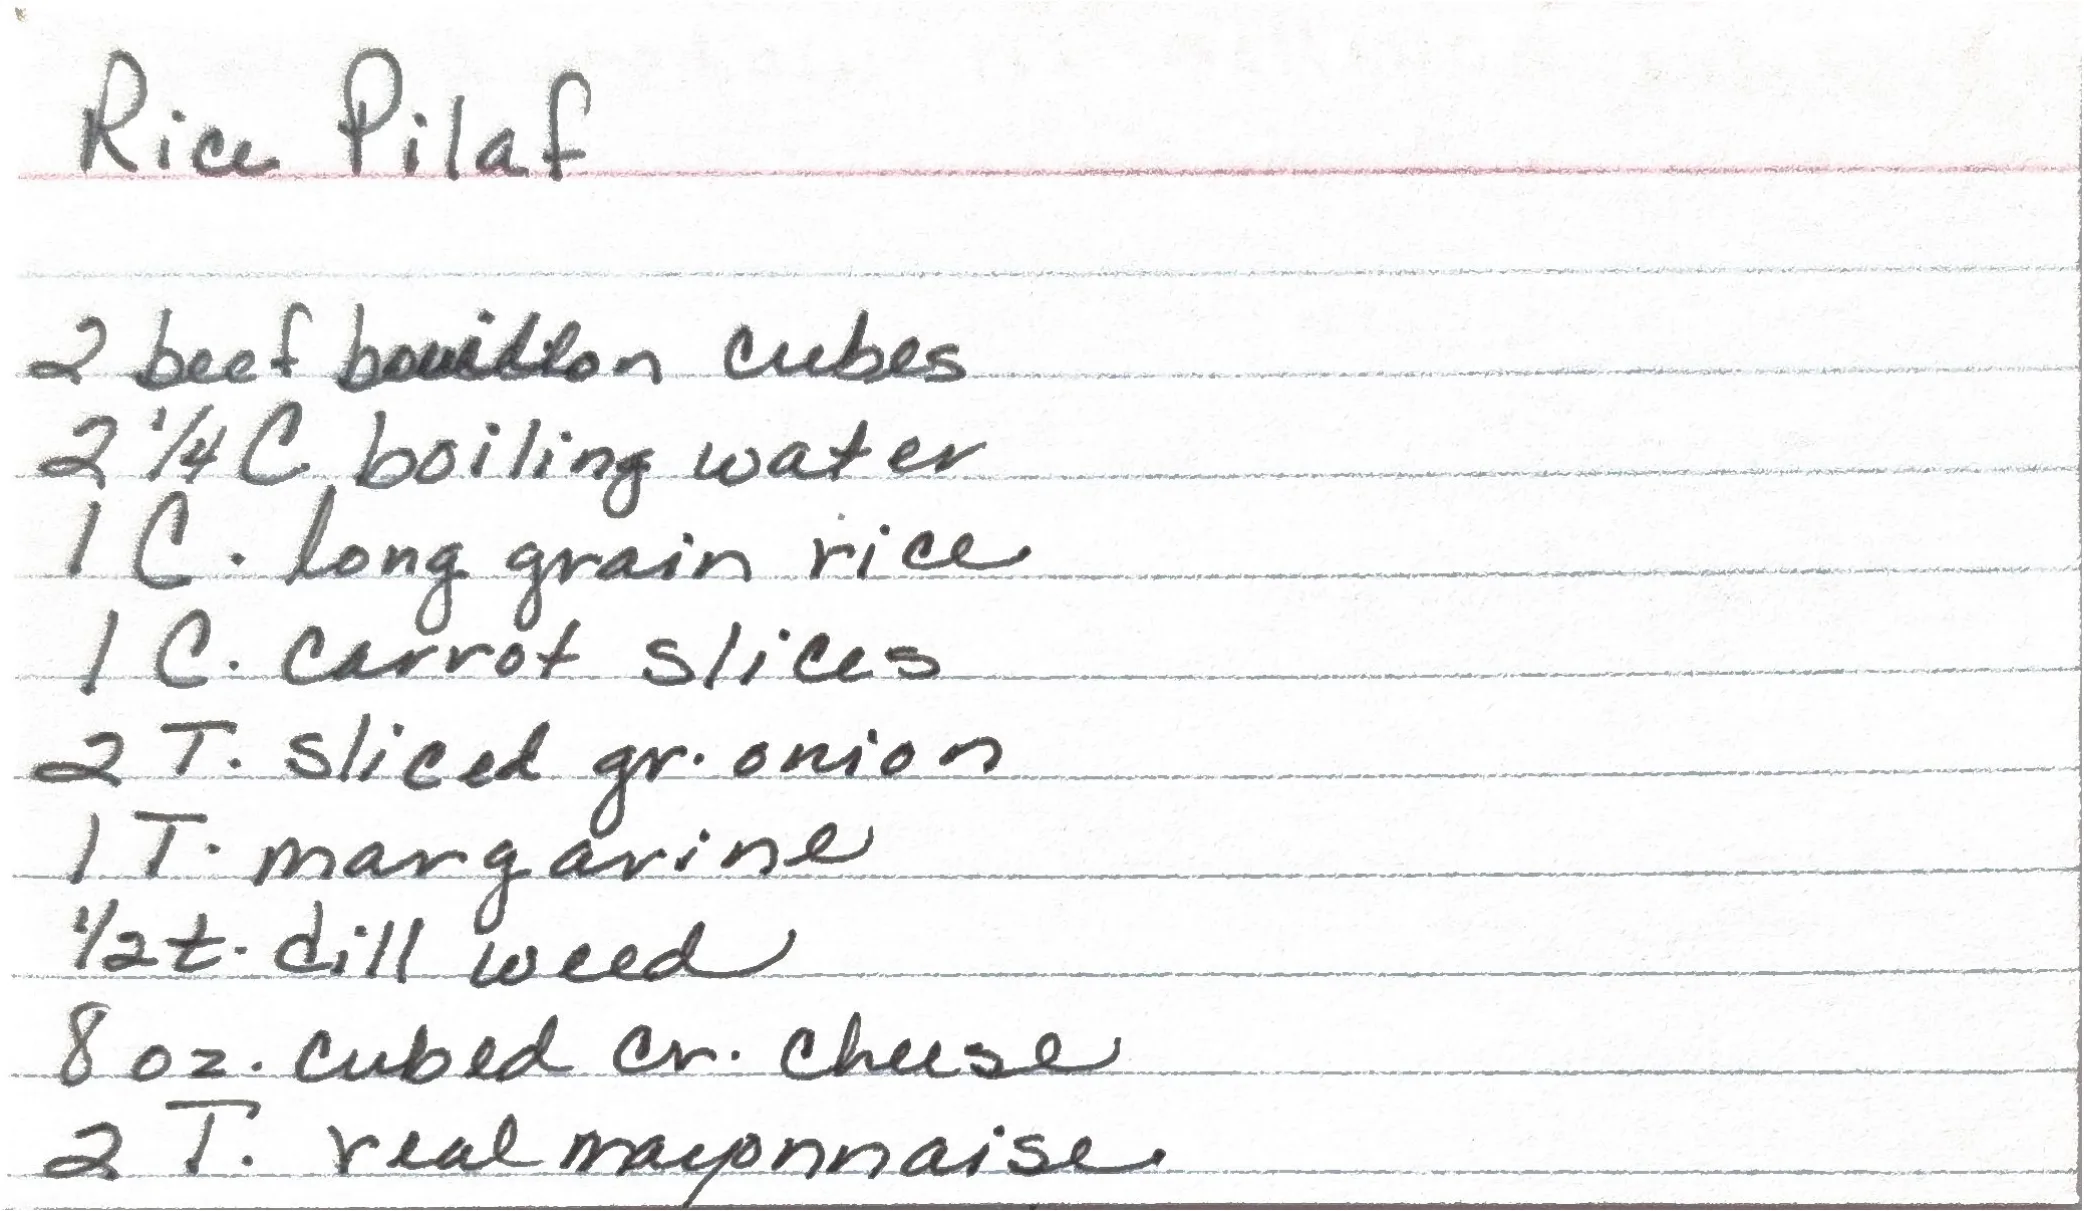 Rice Pilaf
2 beef bouillon cubes
2 1/4 C. boiling water
1 C. long grain rice
1 C. carrot slices
2 T. sliced gr. onion
1 T. margarine
1/2 t. dill weed
8 oz. cubed cr. cheese
2 T. real mayonnaise.